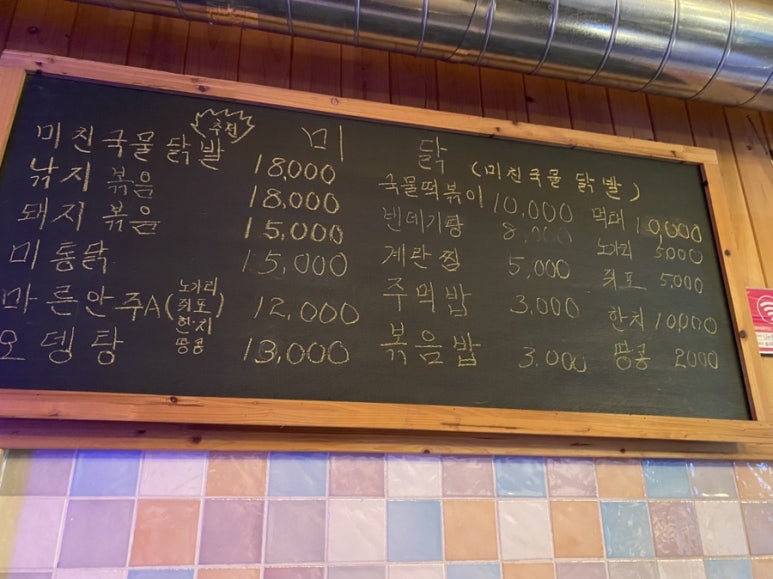 미 닭 (미친국물 닭발)
추천
미친국물닭발 18,000
낚지 볶음 18,000
돼지 볶음 15,000
미통닭 15,000
마른안주A (노가리 쥐포 한치 땅콩) 12,000
오뎅탕 13,000
국물떡볶이 10,000
번데기탕 8,000
계란찜 5,000
주먹밥 3,000
볶음밥 3,000
먹태 10,000
노가리 5,000
쥐포 5,000
한치 10,000
땅콩 2000